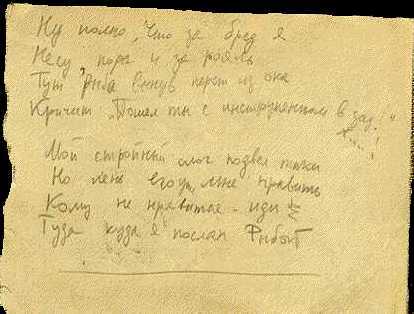 Ну полно, Что за бред я
Несу, пора и за рояль
Тут рыба вынув перст из ока
Кричит „Пошел ты с инструментом в зад!"
х...!
Мой стройный слог подвел
Но лень его уж мне править
Кому не нравится – иди
Туда куда я послан Рыбой